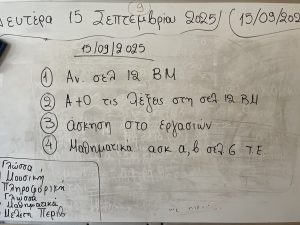 9
Δευτέρα 15 Σεπτεμβρίου 2025/ (15/09/202
15/09/2025
① Αν. σελ 12 ΒΜ
② Α+Ο τις λέξεις στη σελ 12 ΒΜ
③ άσκηση στο εργασιών
④ Μαθηματικά ασκ α, β σελ 6 Τ.Ε.
Γλώσσα
Μουσική
Πληροφορική
Γλώσσα
Μαθηματικά
Μελέτη Περιβ